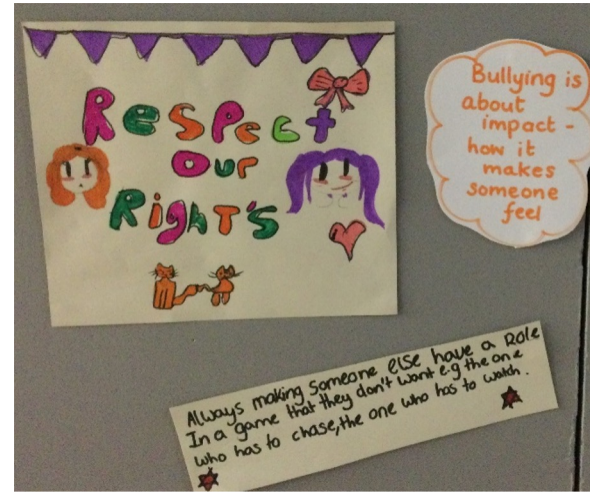 Respect
Our
Right's
Bullying is
about
impact -
how it
makes
someone
feel
Always making someone else have a Role
In a game that they don't want e.g the one
who has to chase, the one who has to watch.